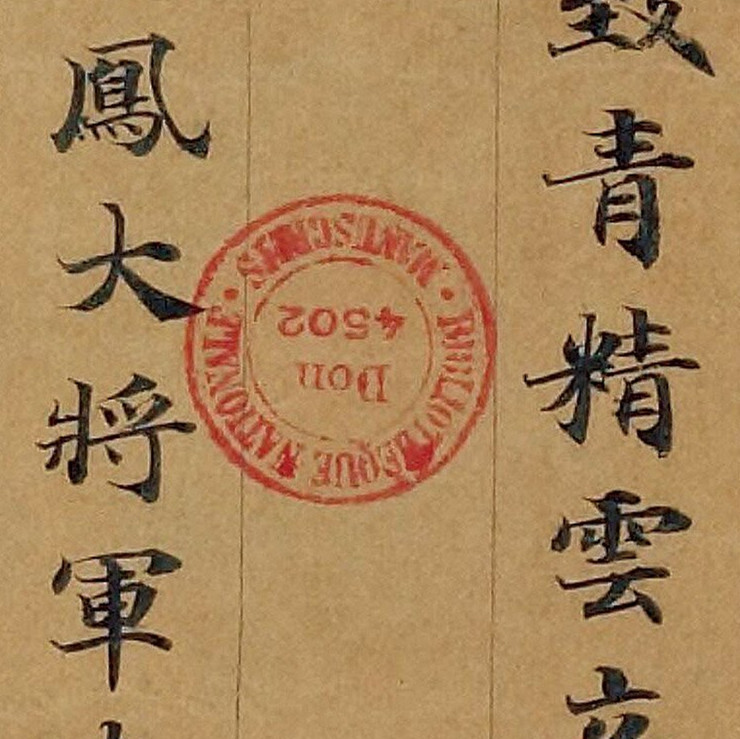 青精雲
鳳大將軍
BIBLIOTHÈQUE NATIONALE
MANUSCRITS
Don
4502